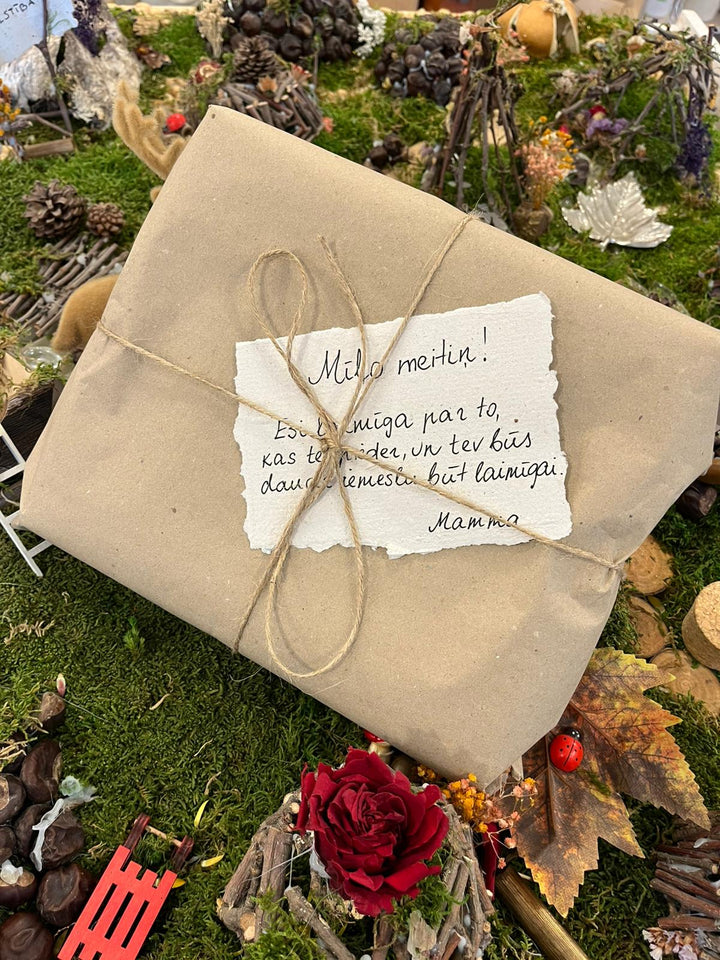 STĪBA
Mīļo meitiņ!
Esi laimīga par to,
kas tev ir der, un tev būs
daudz iemeslu būt laimīgai.
Mamma